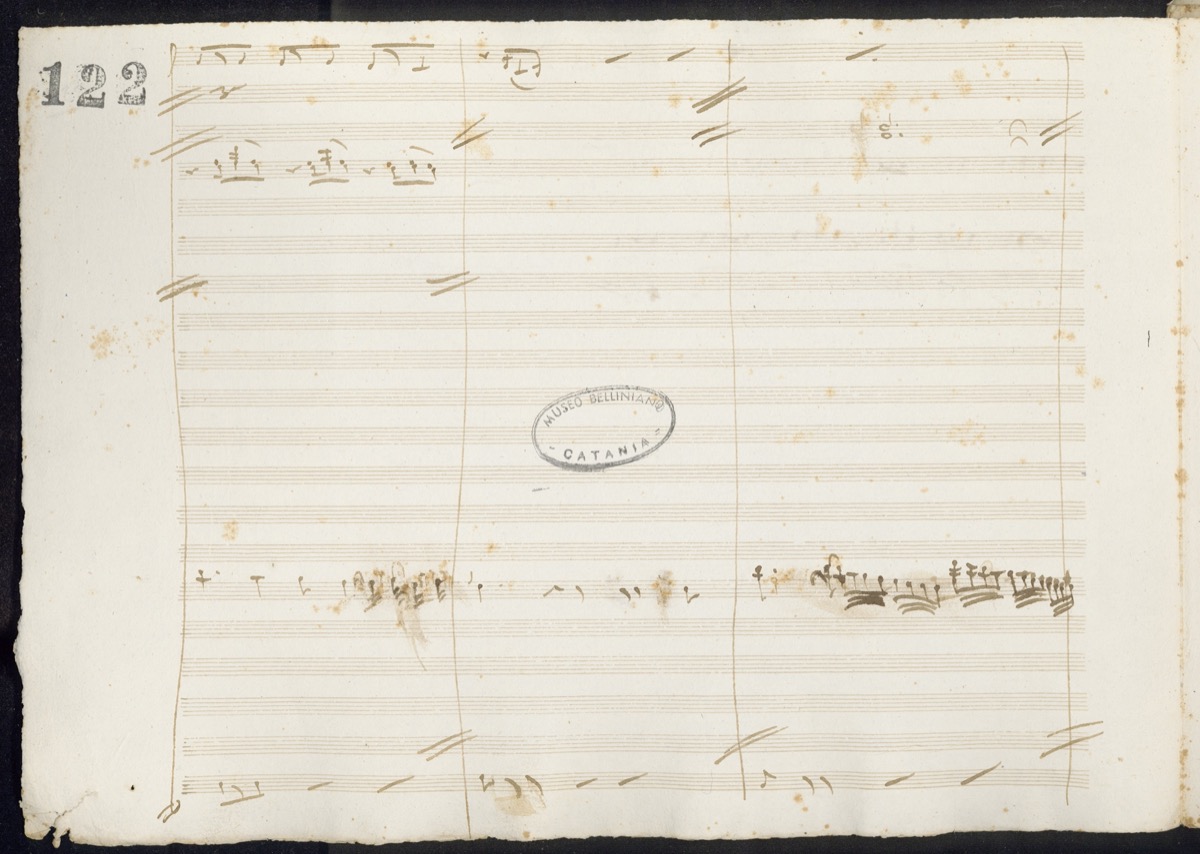 122
MUSEO BELLINIANO
- CATANIA -